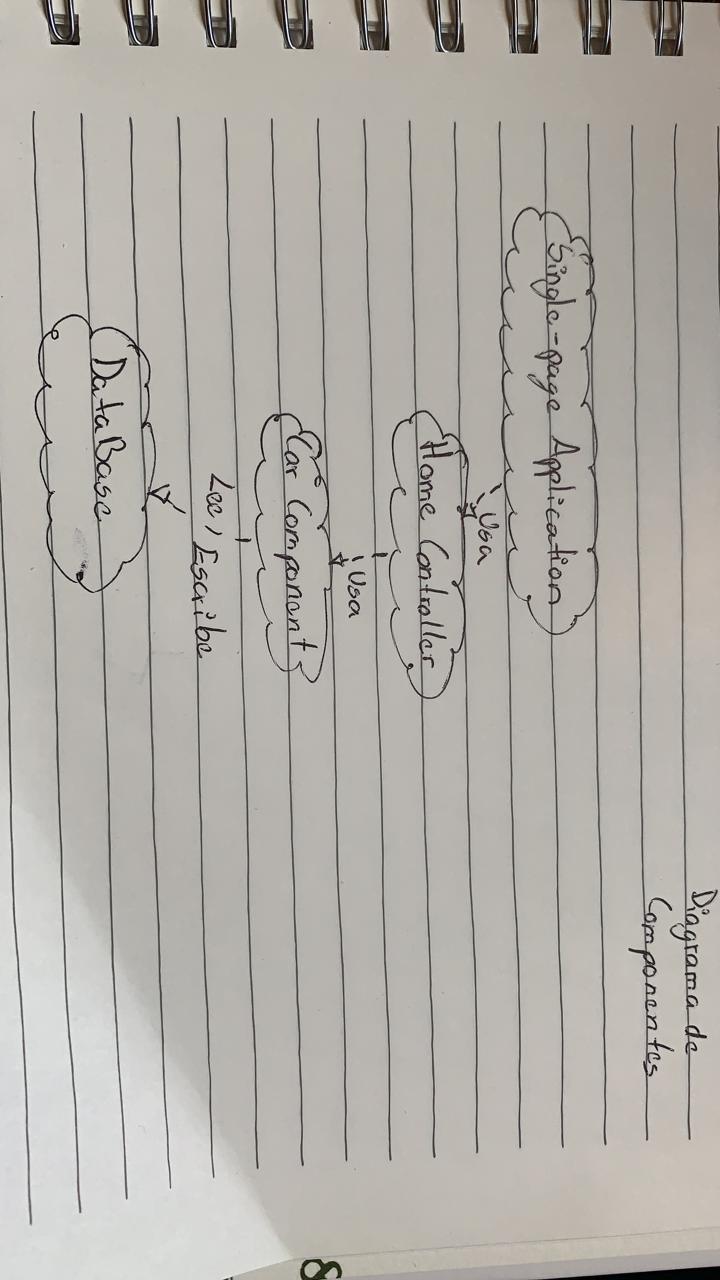 Diagrama de
Componentes
Single-page Application
Usa
Home Controller
Usa
Car Component
Lee, Escribe
DataBase
8